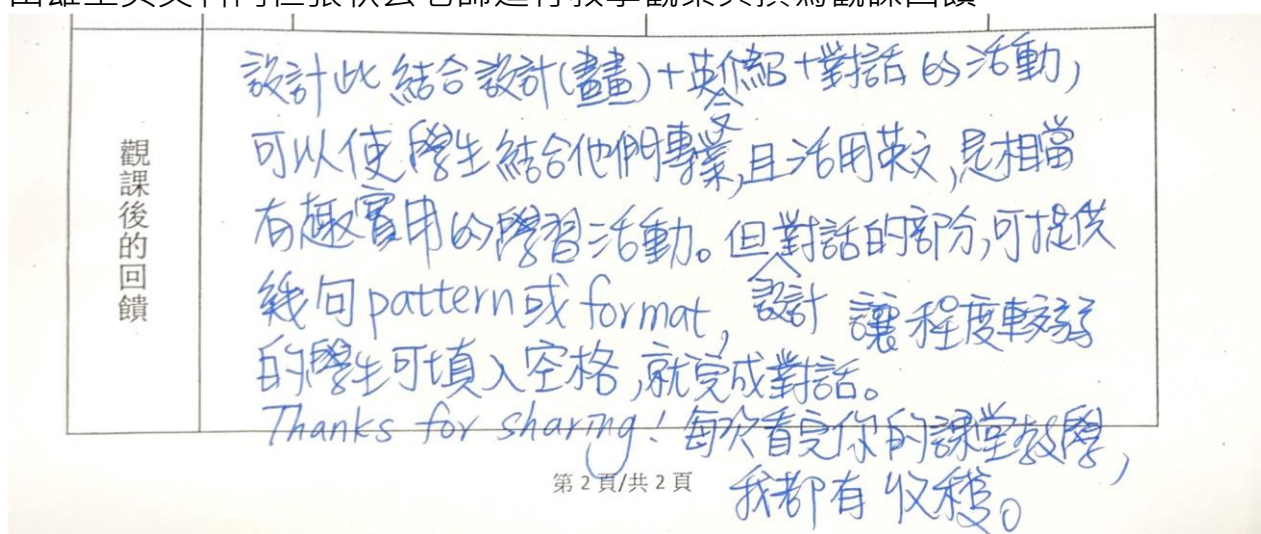 觀課後的回饋
設計此結合設計(畫畫)+英介紹+對話的活動,
文
可以使學生結合他們專業,且活用英文,是相當
有趣實用的學習活動。但對話的部分,可提供
幾句pattern或format,設計 讓程度較弱
的學生可填入空格,就完成對話。
Thanks for sharing! 每次看完你的課堂教學,
我都有收穫。
第2頁/共2頁